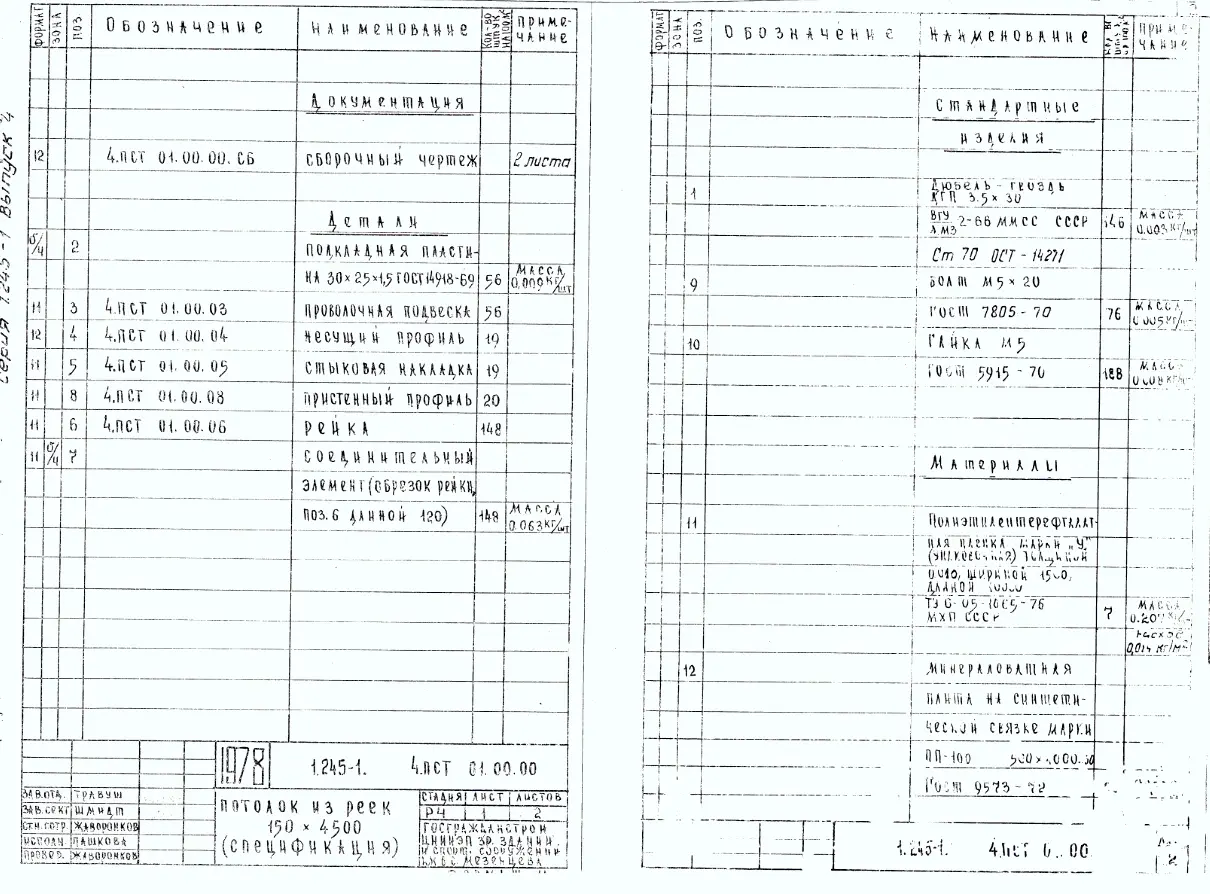 серия 1.245-1 выпуск 4
ФОРМАТ ЗОНА ПОЗ. Обозначение Наименование КОЛ-ВО ШТУК Приме-
чание
Документация
12 4.ПСТ 01.00.00.СБ сборочный чертеж 2 листа
Детали
б/ч 2 подкладная пласти-
на 30×25×1,5 ГОСТ 14918-69 56 МАССА
кг/шт
11 3 4.ПСТ 01.00.03 проволочная подвеска 56
12 4 4.ПСТ 01.00.04 несущий профиль 19
11 5 4.ПСТ 01.00.05 стыковая накладка 19
11 8 4.ПСТ 01.00.08 пристенный профиль 20
11 6 4.ПСТ 01.00.06 рейка 148
11 б/ч 7 соединительный
элемент (обрезок рейки,
поз. 6 длиной 120) 148 МАССА
0.063 кг/шт
1978 1.245-1. 4.ПСТ 01.00.00
ЗАВ.ОТД. ТРАВУШ
ЗАВ.СЕКТ ШМИДТ
ЖАВОРОНКОВ
ИСПОЛН. ПАШКОВА
ПРОВЕР. ЖАВОРОНКОВ
потолок из реек
150 × 4500
(спецификация)
СТАДИЯ ЛИСТ ЛИСТОВ
РЧ 1 2
ГОСГРАЖДАНСТРОЙ
ЦНИИЭП ЗР. ЗДАНИЙ
И СПОРТ. СООРУЖЕНИЙ
ИМ. Б.С. МЕЗЕНЦЕВА
ФОРМАТ ЗОНА ПОЗ. Обозначение Наименование Приме-
чание
Стандартные
изделия
1 Дюбель-гвоздь
ДГП 3.5×30
ВГУ 2-66 ММСС СССР 146 МАССА
0.003 кг/шт
Ст 70 ОСТ-14271
9 болт М5×20
ГОСТ 7805-70 76 МАССА
0.005 кг/
10 Гайка М5
ГОСТ 5915-70 188 МАССА
кг/
Материалы
11 Полиэтилентерефталат-
ная пленка марки „У"
толщиной
шириной
длиной
ТУ 6-05- -76
МХП СССР 7 МАССА
расход
кг/м²
12 минераловатная
плита на синтети-
ческой связке марки
ПП-100
ГОСТ 9573-72
1.245-1. 4.ПСТ 00
2